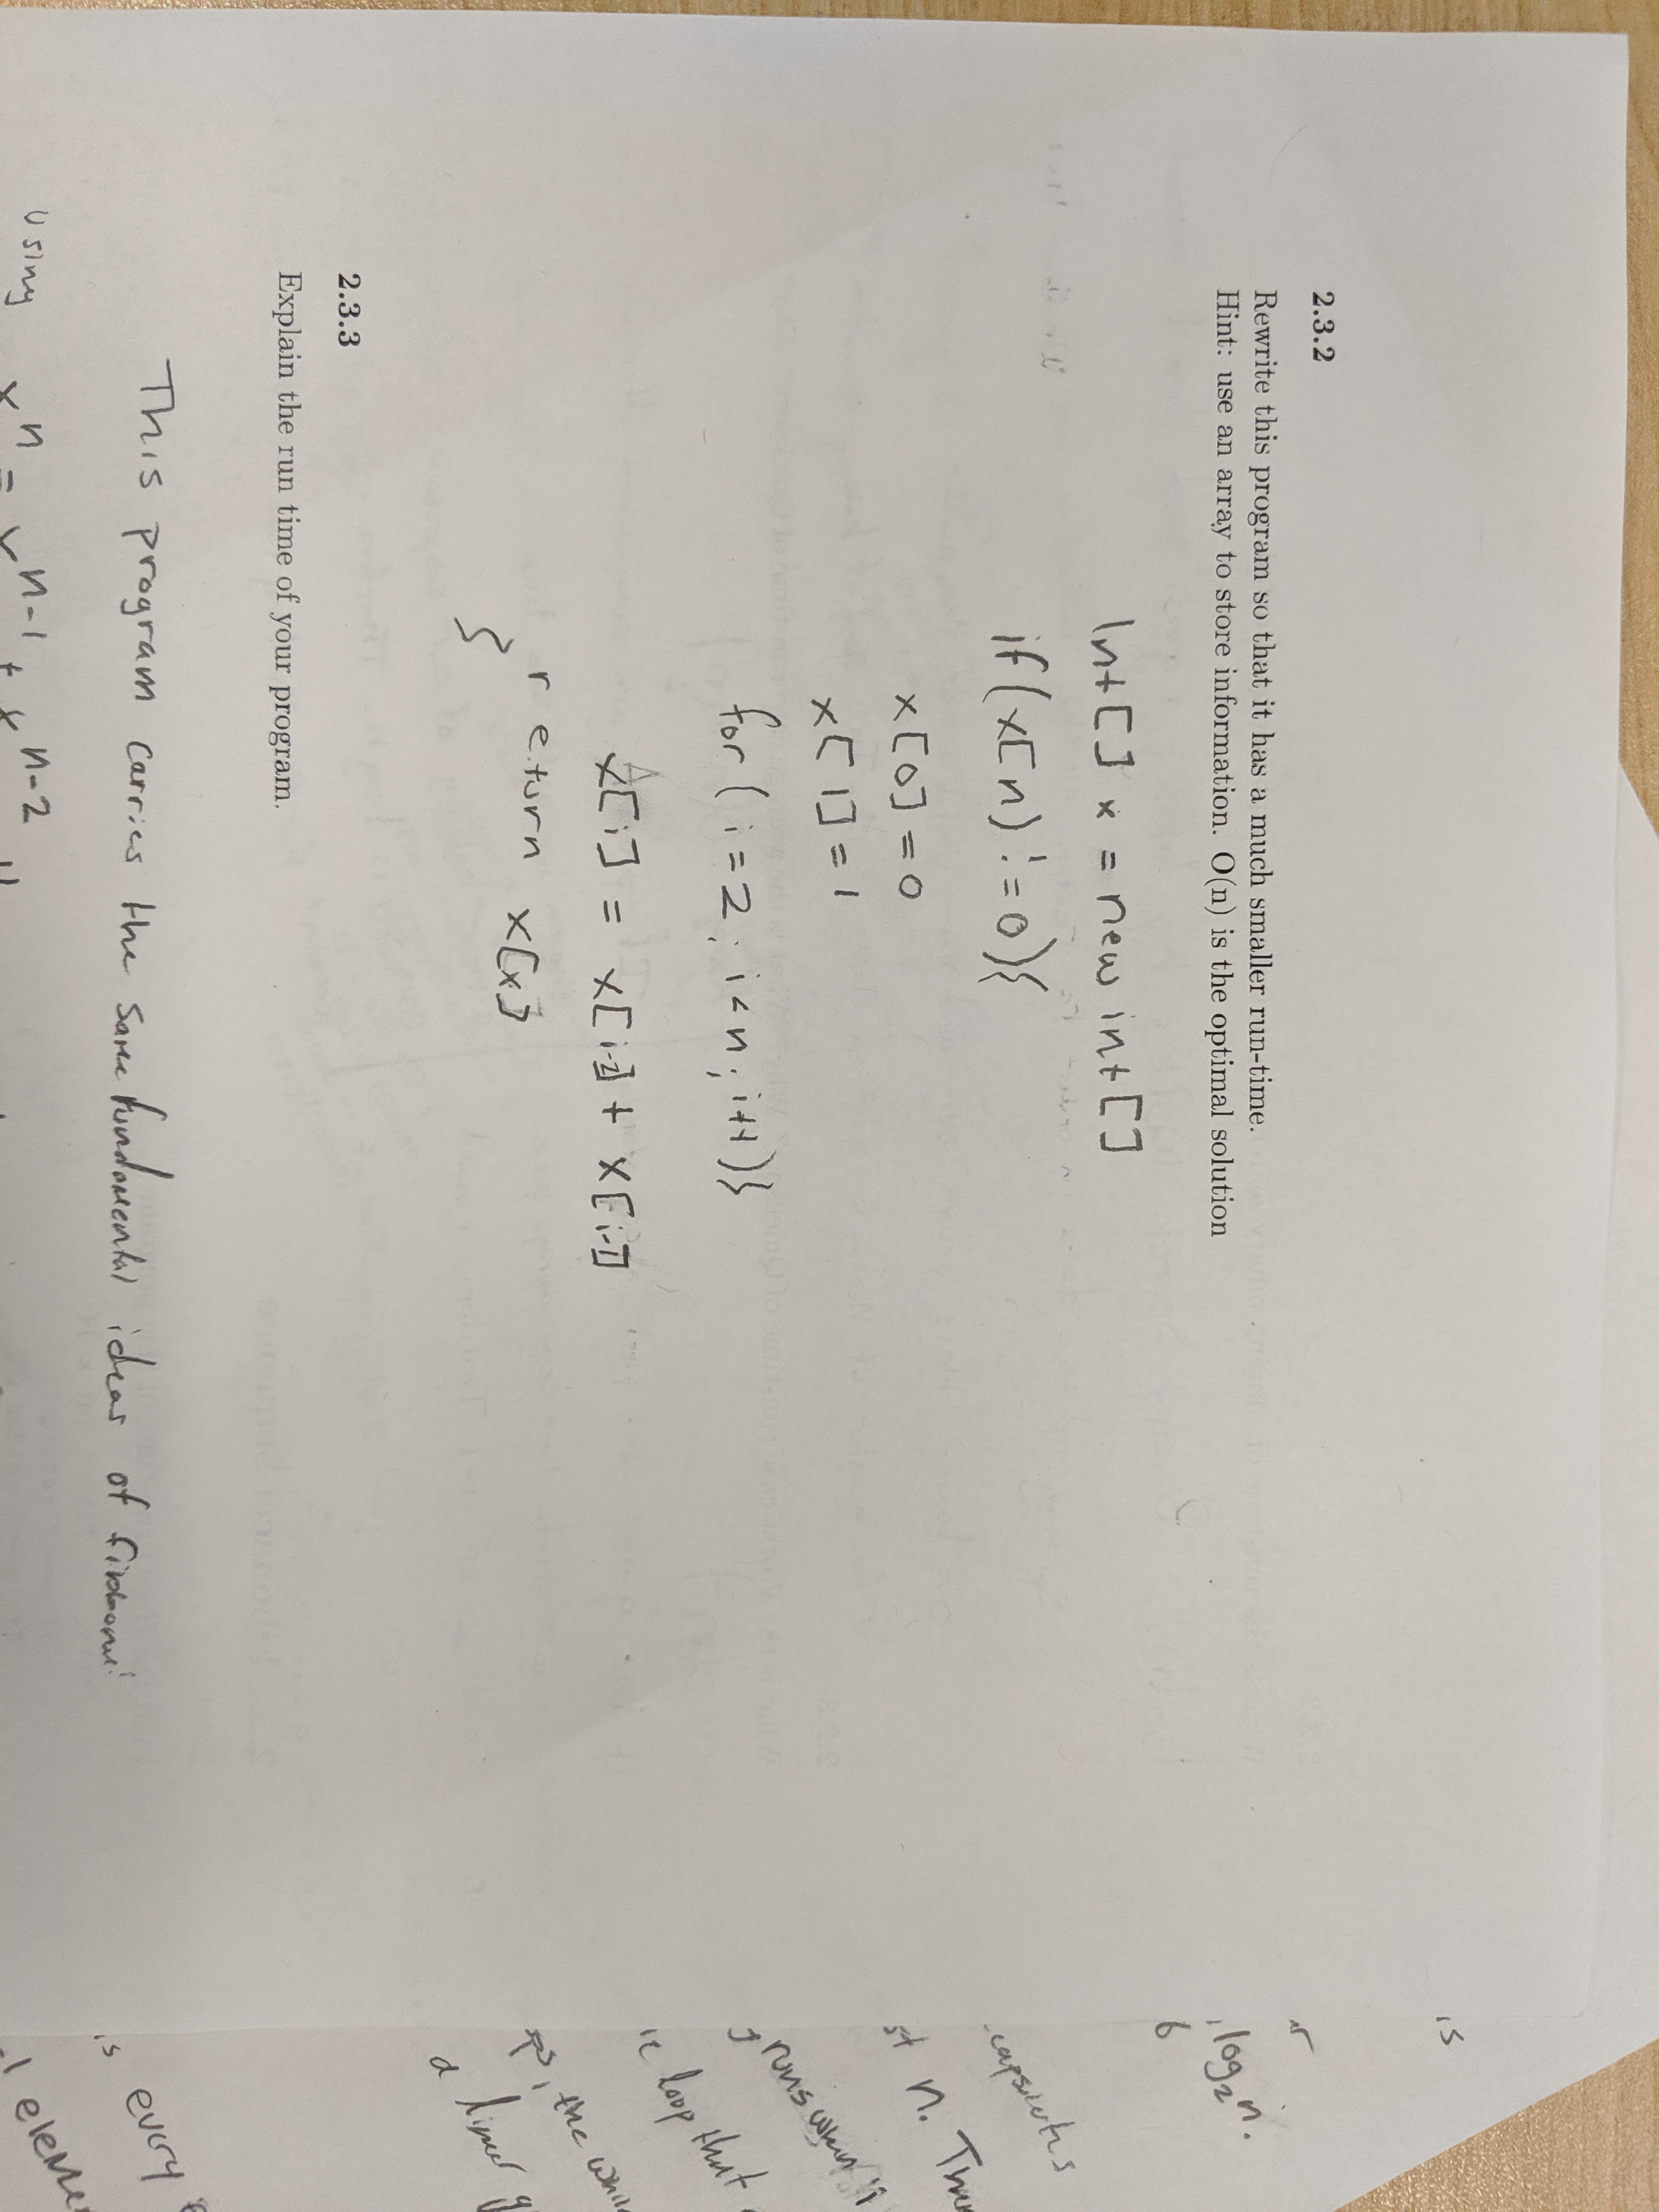 2.3.2
Rewrite this program so that it has a much smaller run-time.
Hint: use an array to store information. O(n) is the optimal solution
int[] x = new int[]
if(x[n) != 0){
x[0] = 0
x[1] = 1
for( i=2; i<n; i++){
x[i] = x[i-2] + x[i-1]
return x[x]
}
2.3.3
Explain the run time of your program.
This program carries the same fundamental ideas of
using x^n = x^n-1 + x^n-2
is
log2n.
st n.
runs when
loop that
, the
a
is every